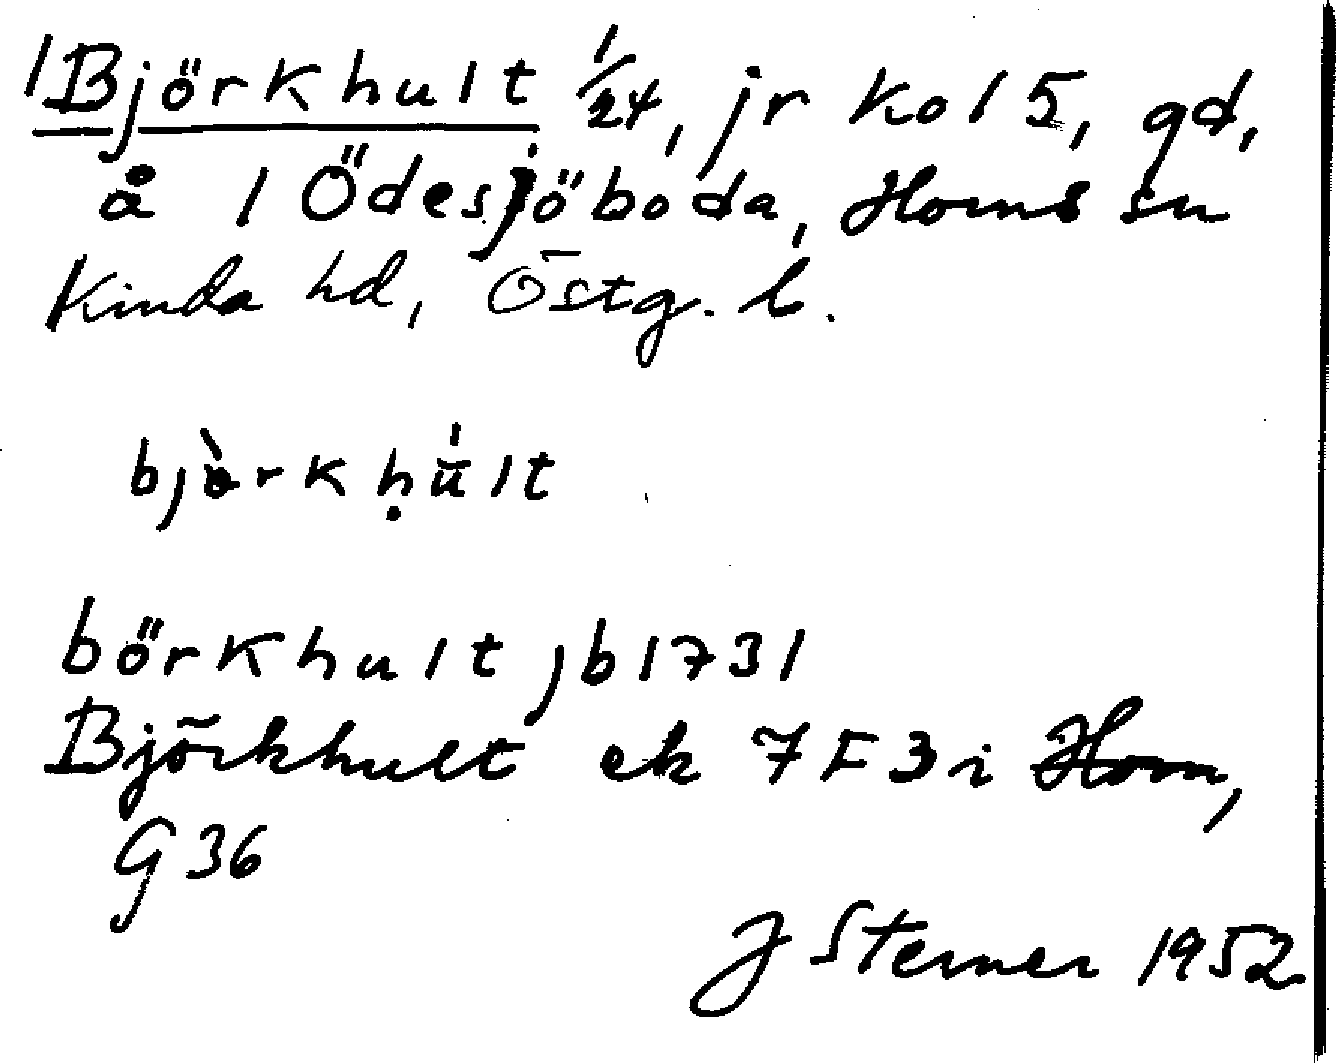 1 Björkhult 1/24, jr ko 15, gd,
å 1 Ödesjöboda, Horns sn
Kinda hd, Östg. l.
bjòrkḥu̇lt
börkhult jb 1731
Björkhult ek 7F3i Horn,
G36
J Sterner 1952